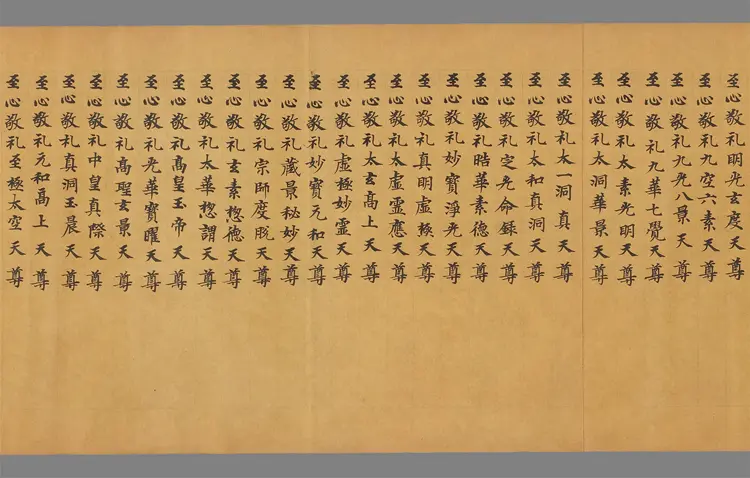 至心敬礼明光玄度天尊
至心敬礼九空六素天尊
至心敬礼九光八景天尊
至心敬礼九華七覺天尊
至心敬礼太素光明天尊
至心敬礼太洞華景天尊
至心敬礼太一洞真天尊
至心敬礼太和真洞天尊
至心敬礼定光命錄天尊
至心敬礼晧華素德天尊
至心敬礼妙寶淨光天尊
至心敬礼真明虛極天尊
至心敬礼太虛靈應天尊
至心敬礼太玄高上天尊
至心敬礼虛極妙靈天尊
至心敬礼妙寶元和天尊
至心敬礼藏景秘妙天尊
至心敬礼宗師度脫天尊
至心敬礼玄素惣德天尊
至心敬礼太華惣謂天尊
至心敬礼高皇玉帝天尊
至心敬礼光華寶曜天尊
至心敬礼高聖玄景天尊
至心敬礼中皇真際天尊
至心敬礼真洞玉晨天尊
至心敬礼元和高上天尊
至心敬礼至極太空天尊